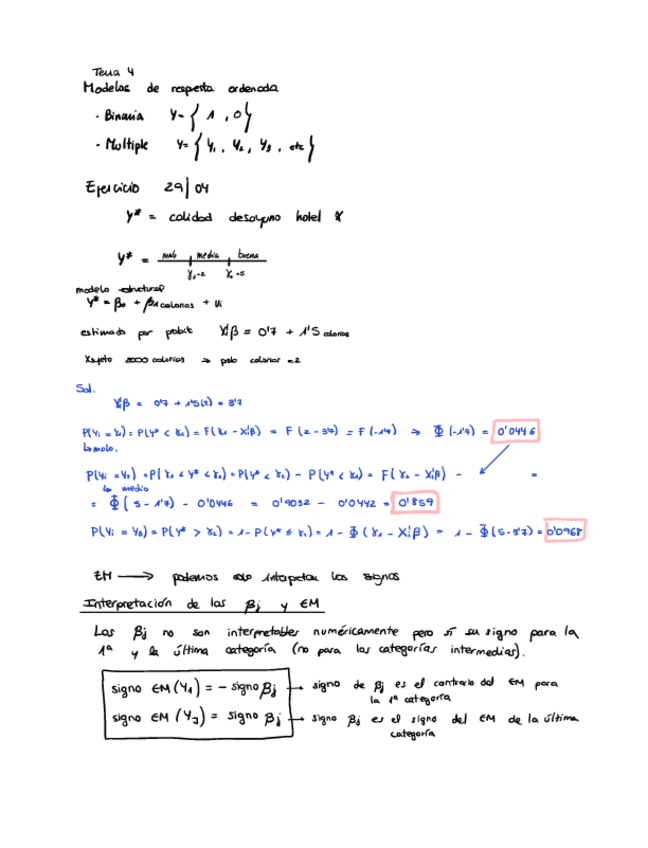 Tema 4
Modelos de respuesta ordenada
· Binaria Y = { 1, 0 }
· Multiple Y = { Y₁, Y₂, Y₃, etc }
Ejercicio 29/04
Y* = calidad desayuno hotel X
malo media buena
Y* =
γ₁=2 γ₂=5
modelo estructural
Y* = β₀ + β₁ calorias + Ui
estimado por probit Xi'β = 0'7 + 1'5 calorias
X sujeto 2000 calorias → calorias = 2
Sol.
Xi'β = 0'7 + 1'5(2) = 3'7
P(Yi = Y₁) = P(Y* < γ₁) = F(γ₁ - Xi'β) = F(2 - 3'7) = F(-1'7) → Φ(-1'7) = 0'0446
↳ malo.
P(Yi = Y₂) = P(γ₁ < Y* < γ₂) = P(Y* < γ₂) - P(Y* < γ₁) = F(γ₂ - Xi'β) - =
↳ medio
= Φ(5 - 3'7) - 0'0446 = 0'9032 - 0'0442 = 0'859
P(Yi = Y₃) = P(Y* > γ₂) = 1 - P(Y* ≤ γ₂) = 1 - Φ(γ₁ - Xi'β) = 1 - Φ(5-3'7) = 0'0968
EM → podemos solo interpretar los signos
Interpretación de las βj y EM
Las βj no son interpretables numéricamente pero sí su signo para la
1ª y la última categoría (no para las categorías intermedias).
signo EM (Y₁) = - signo βj → signo de βj es el contrario del EM para
la 1ª categoría
signo EM (YJ) = signo βj → signo βj es el signo del EM de la última
categoría